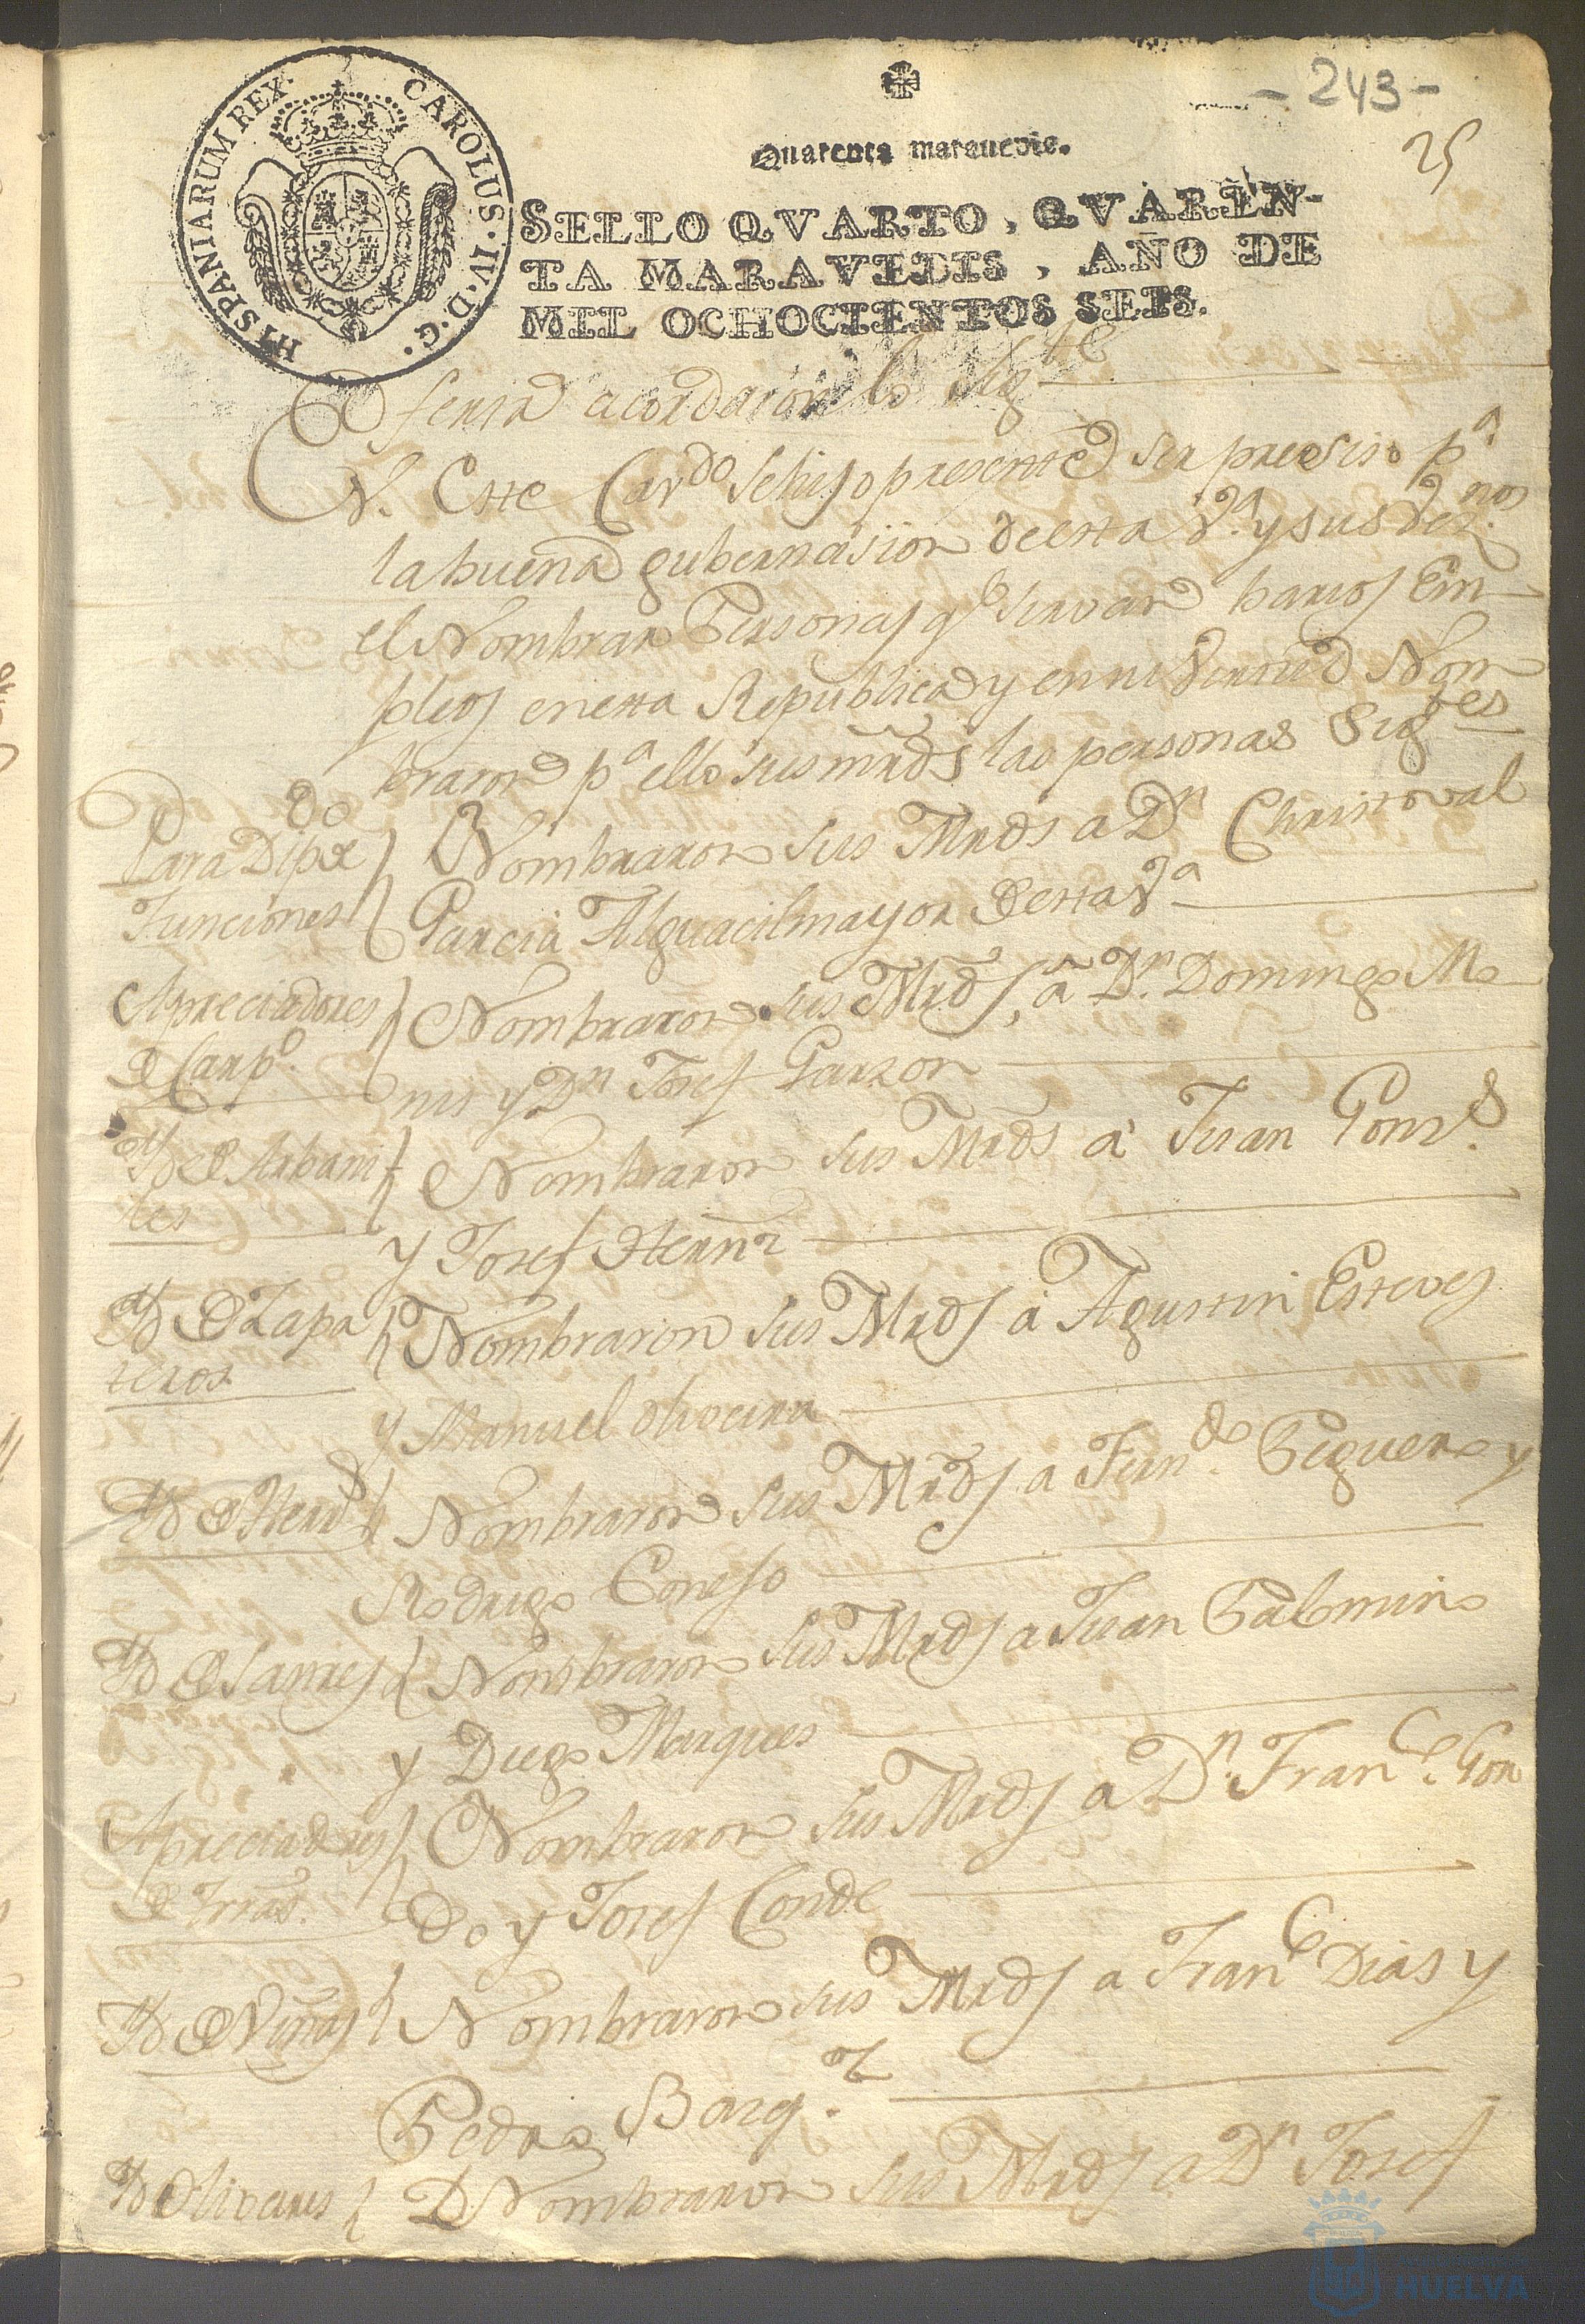 HISPANIARUM REX. CAROLUS. IV. D. G.
- 243 -
25
Quarenta maravedis.
SELLO QVARTO, QVAREN-
TA MARAVEDIS, AÑO DE
MIL OCHOCIENTOS SEIS.
feria acordaron lo Sigte
N. Este Cavdo Sehiso presente ser preciso pa
la buena gubernasion de esta Va. y sus Veznos
el Nombrar Personas qe sirvan barios Em
pleos en esta Republica y en su Virtud Nom
braron pa ello sus mrds las personas Sigtes
Para Dipdo de
Funciones
Nombraron sus Mrds a Dn Christoval
Garcia Alguacil mayor de esta Va
Apreciadores
de Carpo.
Nombraron sus Mrds, a Dn. Domingo Mo
nis y Dn Josef Garzon
Yd de Arbani
les
Nombraron sus Mrds a Juan Gonzs.
y Josef Hernz
Yd de Zapa
teros
Nombraron sus Mrds a Agustin Esteves
y Manuel Oliveira
Yd de Herrs
Nombraron sus Mrds a Ferndo. Peguero y
Rodrigo Conejo
Yd de Sastres
Nombraron sus Mrds a Juan Palomino
y Diego Marques
Apreciadores
de Trras.
Nombraron sus Mrds a Dn. Franco. Gon
do y Josef Conde
Yd de Viñas
Nombraron sus Mrds a Franco Dias y
Pedro Barqz.
Yd Olivares
Nombraron sus Mrds a Dn Josef
HUELVA